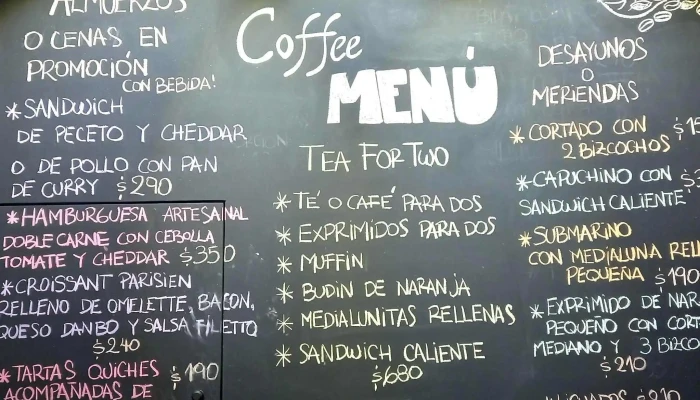 ALMUERZOS
O CENAS EN
PROMOCIÓN
CON BEBIDA!
*SANDWICH
DE PECETO Y CHEDDAR
O DE POLLO CON PAN
DE CURRY $290
*HAMBURGUESA ARTESANAL
DOBLE CARNE CON CEBOLLA
TOMATE Y CHEDDAR $350
*CROISSANT PARISIEN
RELLENO DE OMELETTE, BACON,
QUESO DANBO Y SALSA FILETTO
$240
*TARTAS QUICHES $190
ACOMPAÑADAS DE
Coffee
MENÚ
TEA FOR TWO
*TÉ O CAFÉ PARA DOS
*EXPRIMIDOS PARA DOS
*MUFFIN
*BUDIN DE NARANJA
*MEDIALUNITAS RELLENAS
*SANDWICH CALIENTE
$680
DESAYUNOS
O
MERIENDAS
*CORTADO CON
2 BIZCOCHOS
*CAPUCHINO CON
SANDWICH CALIENTE
*SUBMARINO
CON MEDIALUNA
PEQUEÑA $190
*EXPRIMIDO DE
PEQUEÑO CON
MEDIANO Y 3
$210
$210